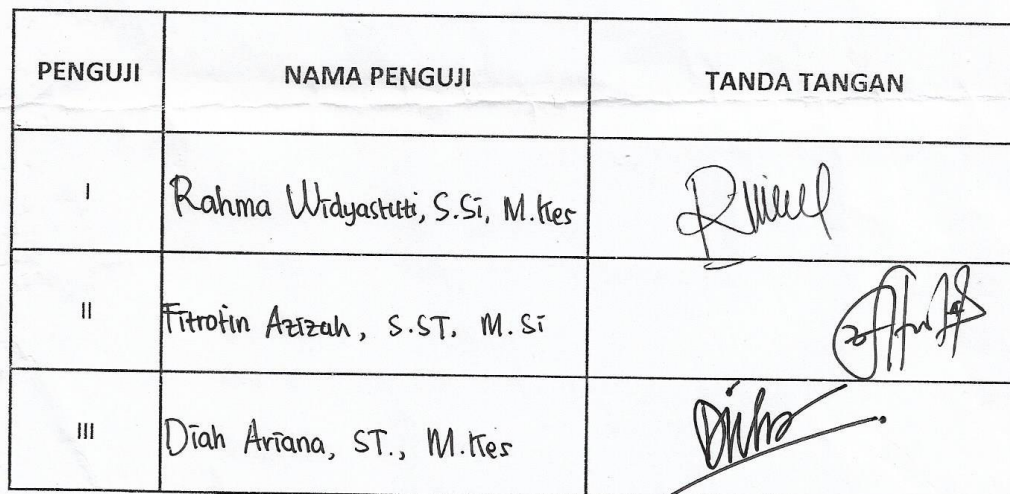 PENGUJI NAMA PENGUJI TANDA TANGAN
I Rahma Widyastuti, S.Si, M.Kes
II Fitrotin Azizah, S.ST. M.Si
III Diah Ariana, ST., M.Kes